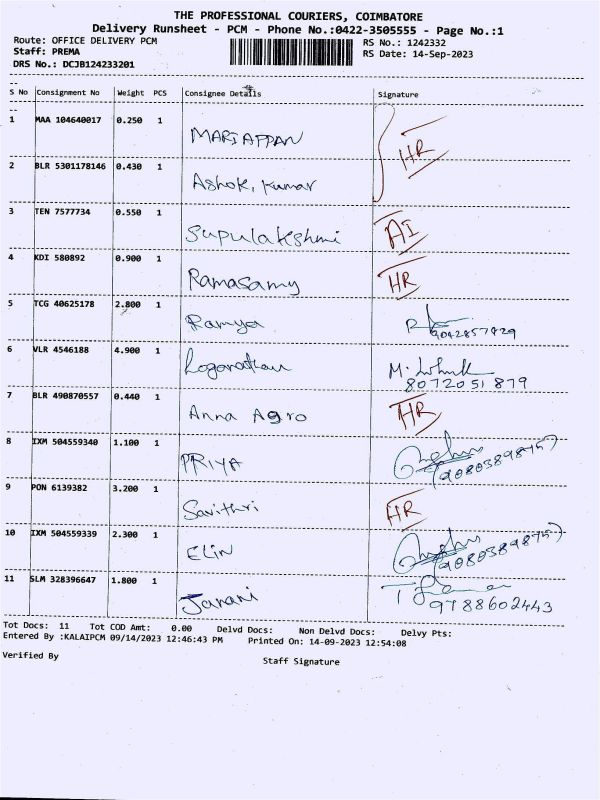 THE PROFESSIONAL COURIERS, COIMBATORE
Delivery Runsheet - PCM - Phone No.:0422-3505555 - Page No.:1
Route: OFFICE DELIVERY PCM RS No.: 1242332
Staff: PREMA RS Date: 14-Sep-2023
DRS No.: DCJB124233201
S No Consignment No Weight PCS Consignee Details Signature
1 MAA 104640017 0.250 1 MARIAPPAN HR
2 BLR 5301178146 0.430 1 Ashok, Kumar
3 TEN 7577734 0.550 1 Supulakshmi AI
4 KDI 580892 0.900 1 Ramasamy HR
5 TCG 40625178 2.800 1 Ramya 9042857929
6 VLR 4546188 4.900 1 M. 8072051879
7 BLR 490870557 0.440 1 Anna Agro HR
8 IXM 504559340 1.100 1 PRIYA (9080389875)
9 PON 6139382 3.200 1 Savithri HR
10 IXM 504559339 2.300 1 Elin (9080389875)
11 SLM 328396647 1.800 1 Janani 9788602443
Tot Docs: 11 Tot COD Amt: 0.00 Delvd Docs: Non Delvd Docs: Delvy Pts:
Entered By :KALAIPCM 09/14/2023 12:46:43 PM Printed On: 14-09-2023 12:54:08
Verified By Staff Signature